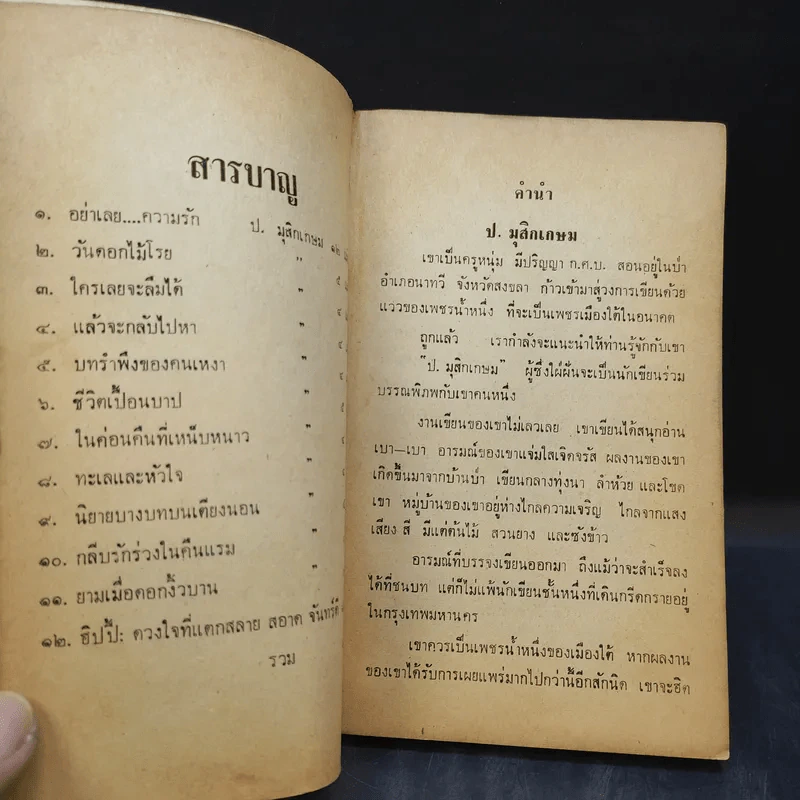 สารบาญ
๑. อย่าเลย....ความรัก ป. มุสิกเกษม ๑๒
๒. วันดอกไม้โรย "
๓. ใครเลยจะลืมได้ "
๔. แล้วจะกลับไปหา "
๕. บทรำพึงของคนเหงา "
๖. ชีวิตเปื้อนบาป "
๗. ในค่อนคืนที่เหน็บหนาว "
๘. ทะเลและหัวใจ "
๙. นิยายบางบทบนเตียงนอน "
๑๐. กลีบรักร่วงในคืนแรม "
๑๑. ยามเมื่อดอกงิ้วบาน "
๑๒. ฮิปปี้: ดวงใจที่แตกสลาย สอาด จันทร์ดี
รวม
คำนำ
ป. มุสิกเกษม
เขาเป็นครูหนุ่ม มีปริญญา ก.ศ.บ. สอนอยู่ในป่า
อำเภอนาทวี จังหวัดสงขลา ก้าวเข้ามาสู่วงการเขียนด้วย
แววของเพชรน้ำหนึ่ง ที่จะเป็นเพชรเมืองใต้ในอนาคต
ถูกแล้ว เรากำลังจะแนะนำให้ท่านรู้จักกับเขา
"ป. มุสิกเกษม" ผู้ซึ่งใฝ่ฝันจะเป็นนักเขียนร่วม
บรรณพิภพกับเขาคนหนึ่ง
งานเขียนของเขาไม่เลวเลย เขาเขียนได้สนุกอ่าน
เบา—เบา อารมณ์ของเขาแจ่มใสเจิดจรัส ผลงานของเขา
เกิดขึ้นมาจากบ้านป่า เขียนกลางทุ่งนา ลำห้วย และโขด
เขา หมู่บ้านของเขาอยู่ห่างไกลความเจริญ ไกลจากแสง
เสียง สี มีแต่ต้นไม้ สวนยาง และซังข้าว
อารมณ์ที่บรรจงเขียนออกมา ถึงแม้ว่าจะสำเร็จลง
ได้ที่ชนบท แต่ก็ไม่แพ้นักเขียนชั้นหนึ่งที่เดินกรีดกรายอยู่
ในกรุงเทพมหานคร
เขาควรเป็นเพชรน้ำหนึ่งของเมืองใต้ หากผลงาน
ของเขาได้รับการเผยแพร่มากไปกว่านี้อีกสักนิด เขาจะฮิต